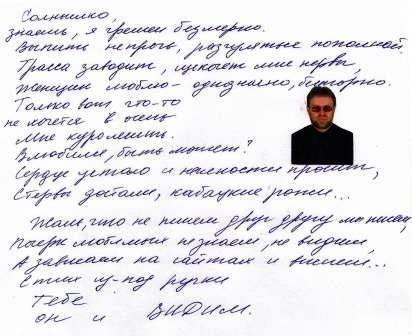 Солнышко
знаешь, я грешен безмерно.
Выпить не прочь, разгуляться по полной.
Трасса заводит, щекочет мне нервы,
Женщин люблю - однозначно, бесспорно.
Только вот что-то
не хочется в очень
Мне куролесить.
Влюбился, быть может?
Сердце устало и нежности просит,
Стервы достали, кабацкие рожи...
Жаль, что не пишем друг другу мы писем,
не знаем, не видим,
А зависаем на сайтах и висим...
Стих из-под ручки
Тебе
он и